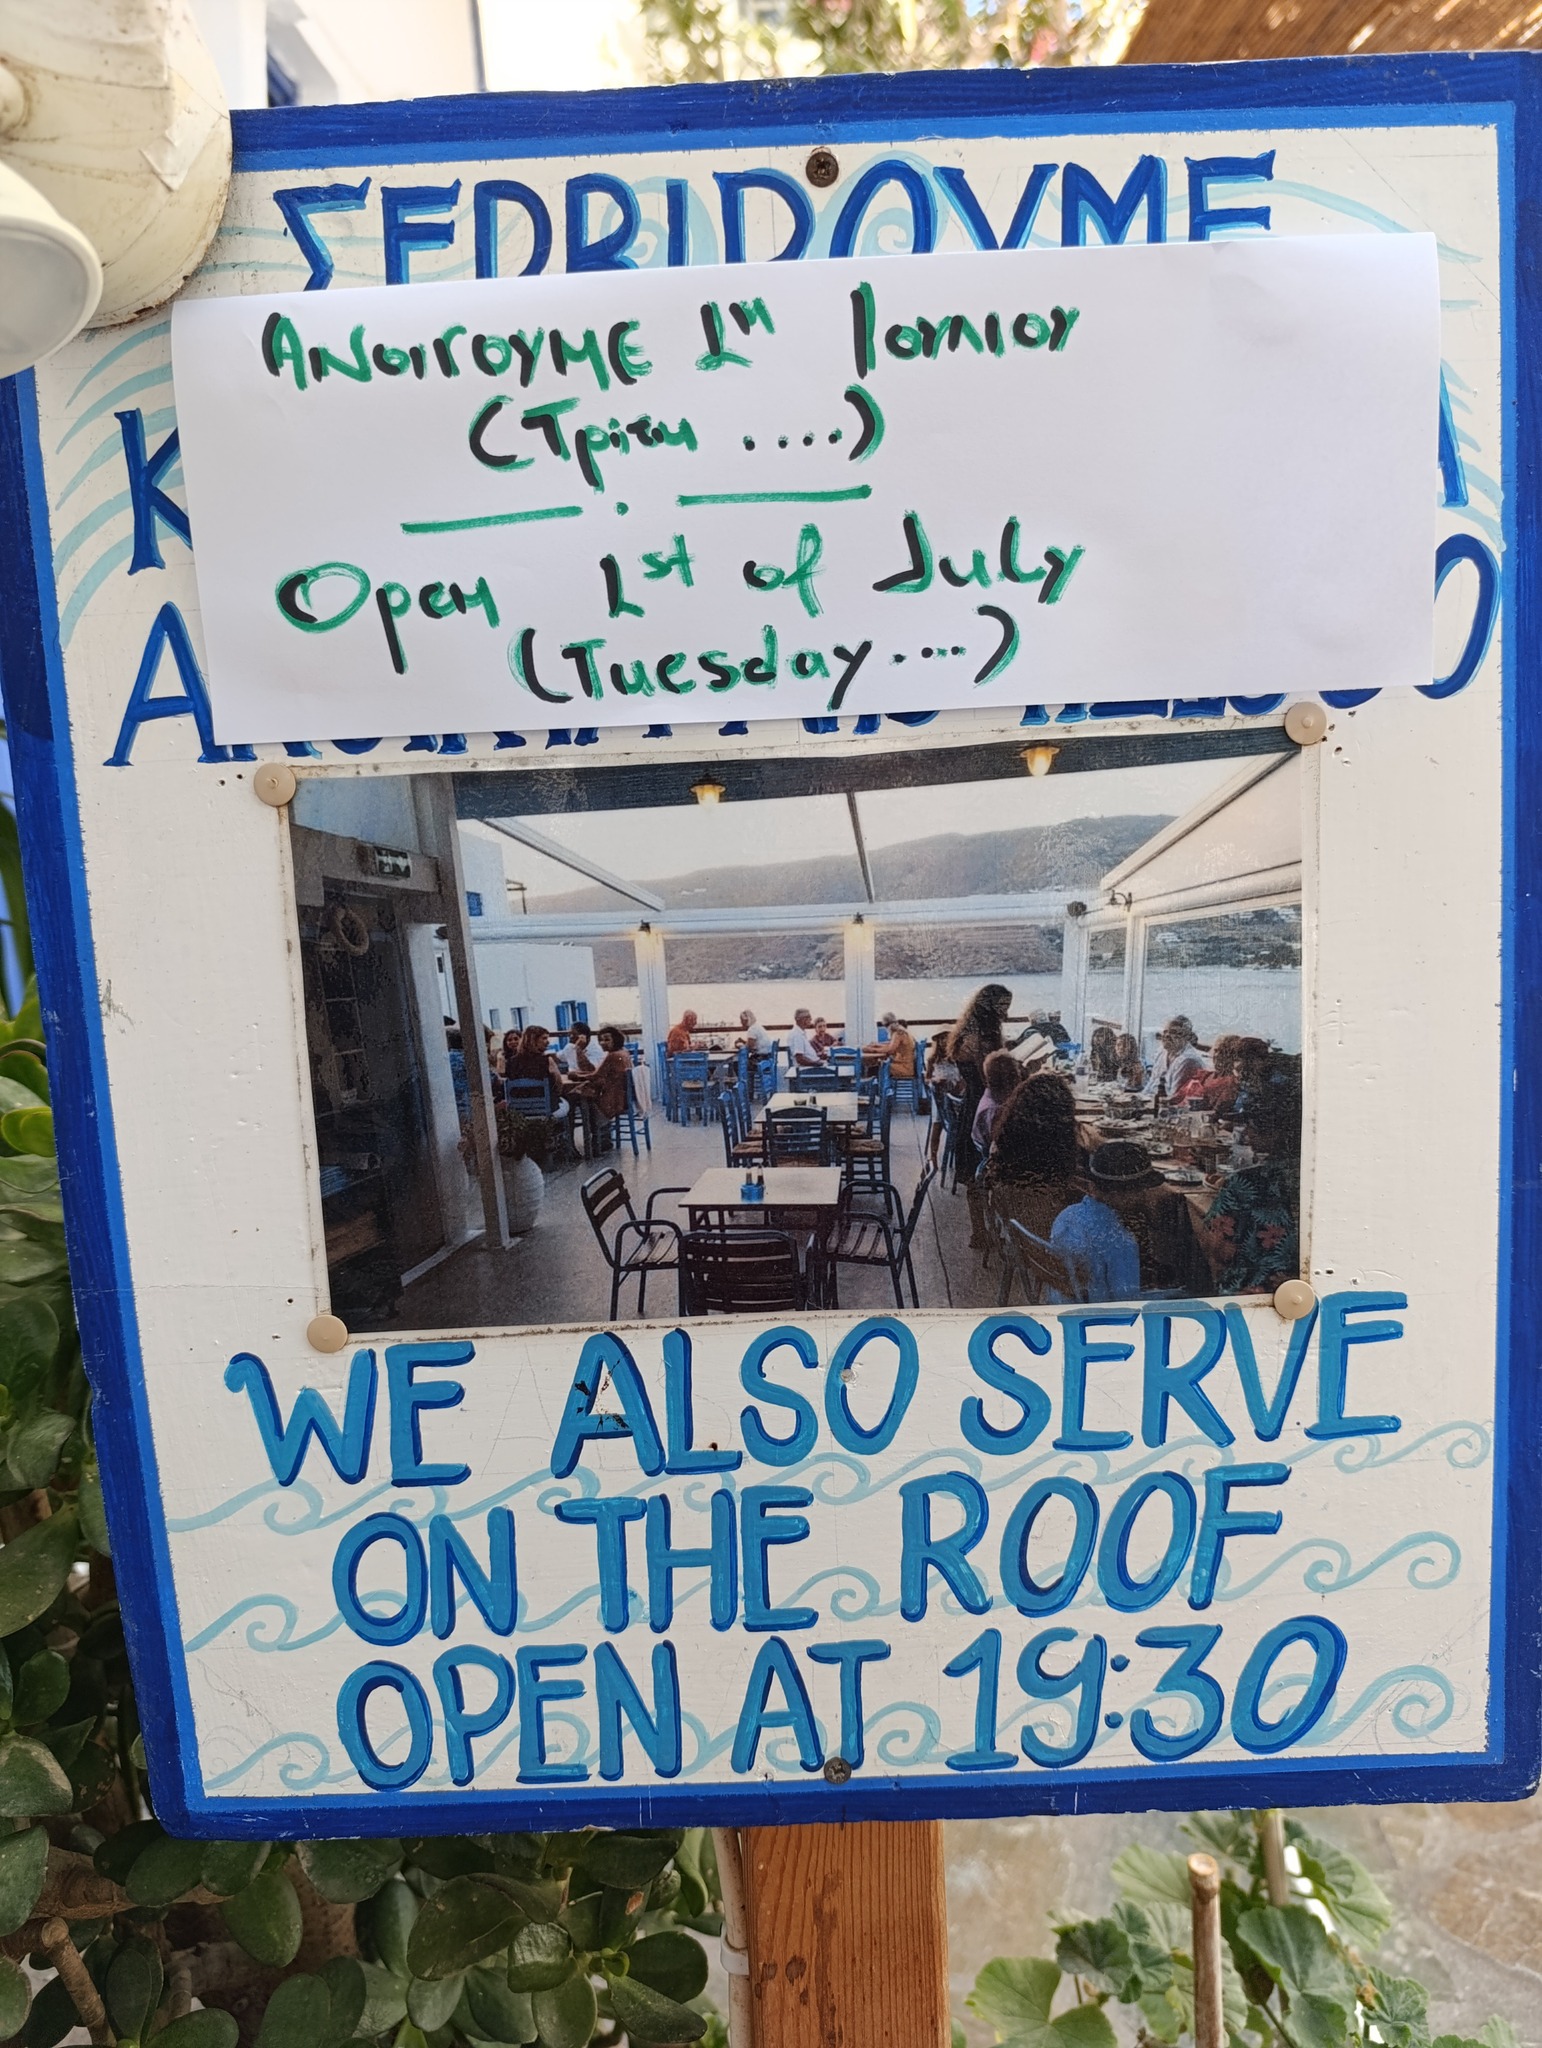 ΣΕΡΒΙΡΟΥΜΕ
ΑΝΟΙΓΟΥΜΕ 1η Ιουλιου
(Τρίτη ....)
Open 1st of July
(Tuesday....)
WE ALSO SERVE
ON THE ROOF
OPEN AT 19:30